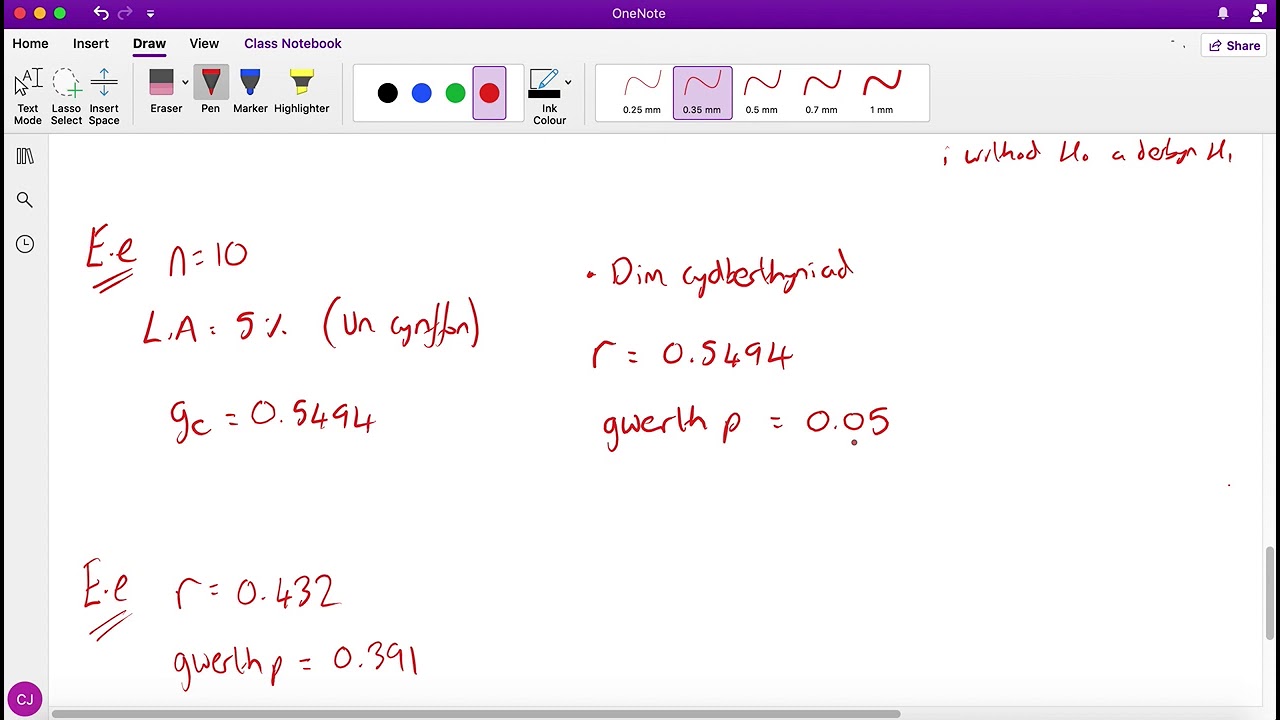 OneNote
Home Insert Draw View Class Notebook
Share
Text Mode
Lasso Select
Insert Space
Eraser
Pen
Marker
Highlighter
Ink Colour
0.25 mm
0.35 mm
0.5 mm
0.7 mm
1 mm
i wrthod H₀ a derbyn H₁
E.e n = 10
L.A = 5% (Un cynffon)
gc = 0.5494
• Dim cydberthyniad
r = 0.5494
gwerth p = 0.05
E.e r = 0.432
gwerth p = 0.391
CJ